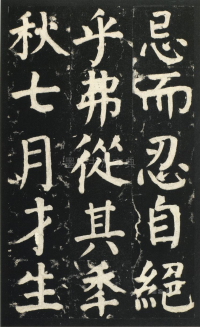 忌而忍自絕
乎弗從其秊
秋七月才生